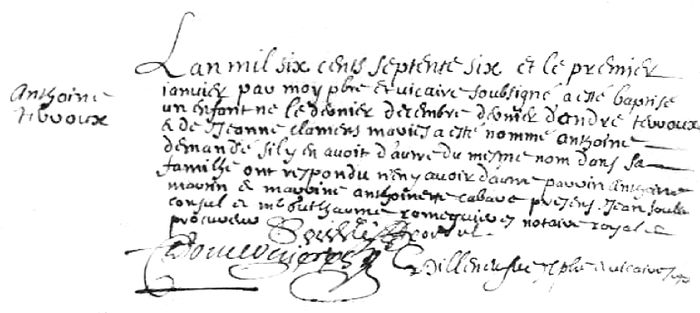 Lan mil six cents septente six et le premier
Anthoine
terroux
janvier par moy pbre et vicaire soubsigné a esté baptisé
un enfant né le dernier decembre dernier d'andré terroux
& de Jeanne clamens mariés a esté nommé anthoine
demandé sil y en avoit d'autre du mesme nom dans sa
famille ont respondu n'en y avoir d'autre parrin anthoine
maurin & marrine anthoinette cabave presens Jean soulie
consul et me guilhaume romeguieres notaire royal &
procureur
Romeguieres
Villeneufve pbre & vicaire